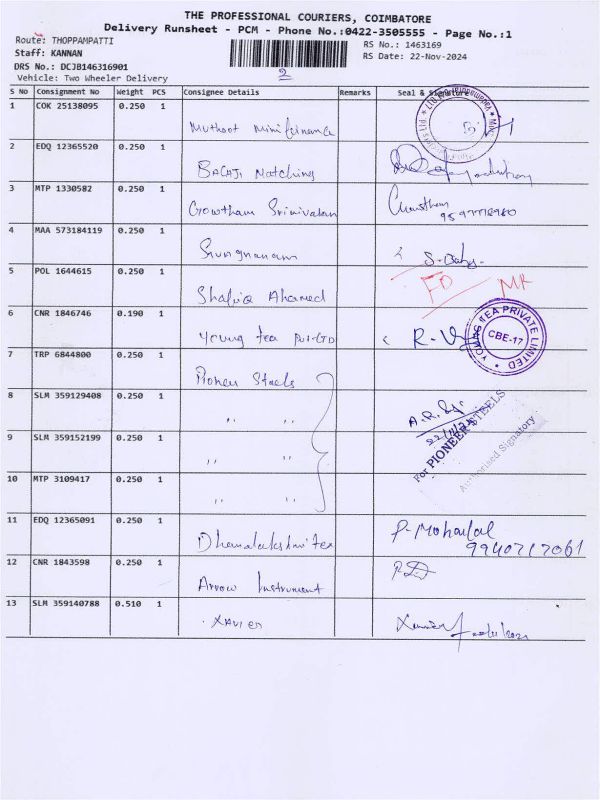 THE PROFESSIONAL COURIERS, COIMBATORE
Delivery Runsheet - PCM - Phone No.:0422-3505555 - Page No.:1
Route: THOPPAMPATTI
RS No.: 1463169
Staff: KANNAN
RS Date: 22-Nov-2024
DRS No.: DCJB146316901
Vehicle: Two Wheeler Delivery
2
S No Consignment No Weight PCS Consignee Details Remarks Seal & Signature
1 COK 25138095 0.250 1
Muthoot Minifinance
2 EDQ 12365520 0.250 1
BALAJI Matching
3 MTP 1330582 0.250 1
Gowtham Srinivasan
4 MAA 573184119 0.250 1
S. Baby.
5 POL 1644615 0.250 1
Shafiq Ahamed
FD MR
6 CNR 1846746 0.190 1
Young tea Pvt-LTD
YOUNG TEA PRIVATE LIMITED
CBE-17
7 TRP 6844800 0.250 1
Pioneer Steels
8 SLM 359129408 0.250 1
" "
22/11/24
For PIONEER STEELS
Authorised Signatory
9 SLM 359152199 0.250 1
" "
10 MTP 3109417 0.250 1
" "
11 EDQ 12365091 0.250 1
Dhanalakshmi tex
P. Mohanlal
12 CNR 1843598 0.250 1
Arrow Instrument
13 SLM 359140788 0.510 1
XAVIER